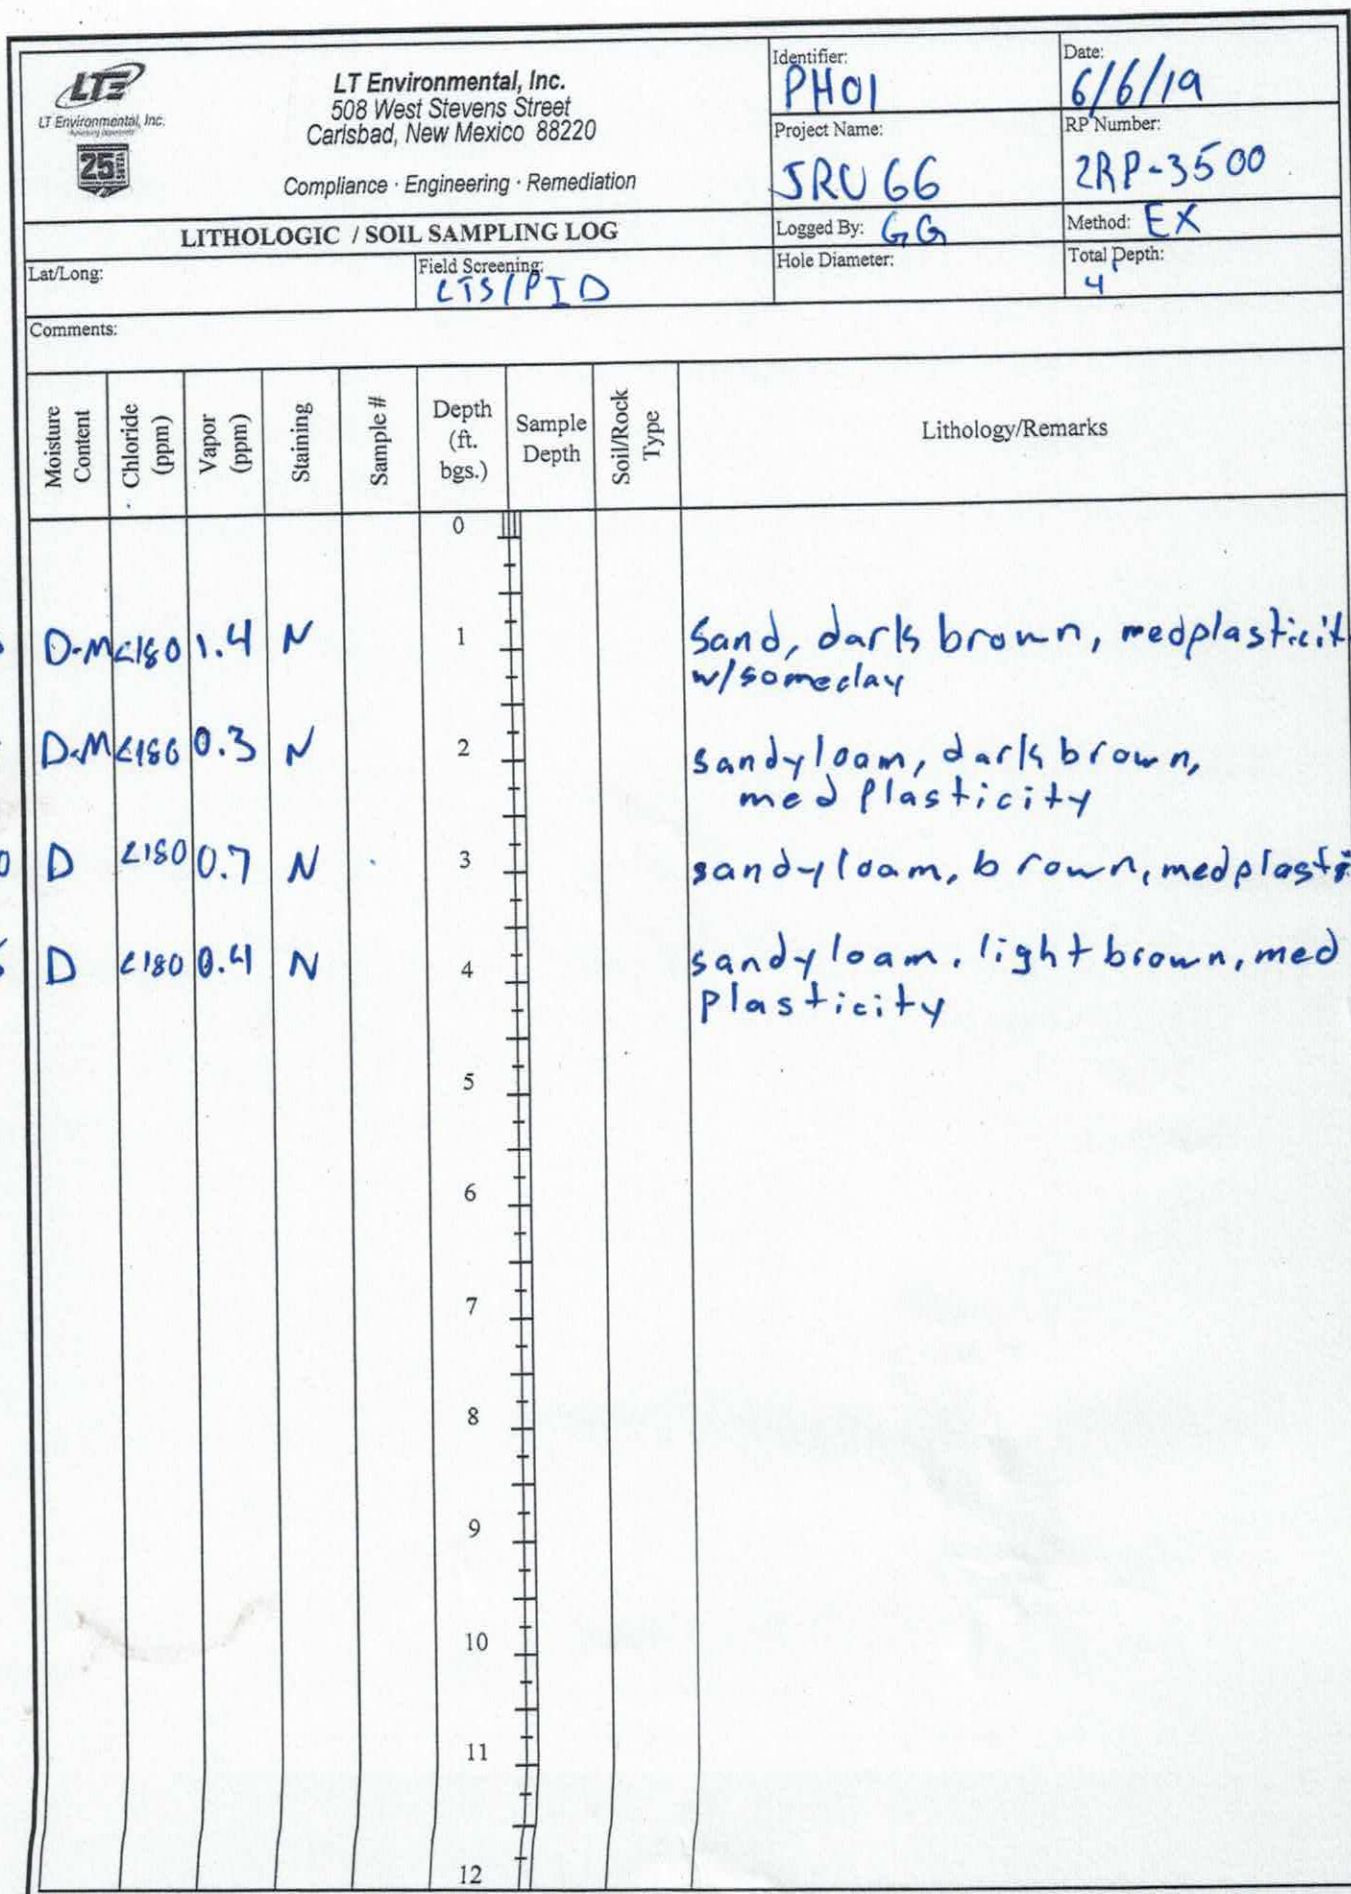 LTE
LT Environmental, Inc.
25
LT Environmental, Inc.
508 West Stevens Street
Carlsbad, New Mexico 88220
Compliance · Engineering · Remediation
LITHOLOGIC / SOIL SAMPLING LOG
Identifier:
PH01
Date:
6/6/19
Project Name:
JRU 66
RP Number:
2RP-3500
Logged By: GG
Method: EX
Lat/Long:
Field Screening:
CTS/PID
Hole Diameter:
Total Depth:
4'
Comments:
Moisture Content
Chloride (ppm)
Vapor (ppm)
Staining
Sample #
Depth (ft. bgs.)
Sample Depth
Soil/Rock Type
Lithology/Remarks
0
D-M <180 1.4 N 1 Sand, dark brown, med plasticit
w/some clay
D-M <180 0.3 N 2 sandy loam, dark brown,
med plasticity
D <180 0.7 N 3 sandy loam, brown, med plasti
D <180 0.4 N 4 sandy loam, light brown, med
plasticity
5
6
7
8
9
10
11
12